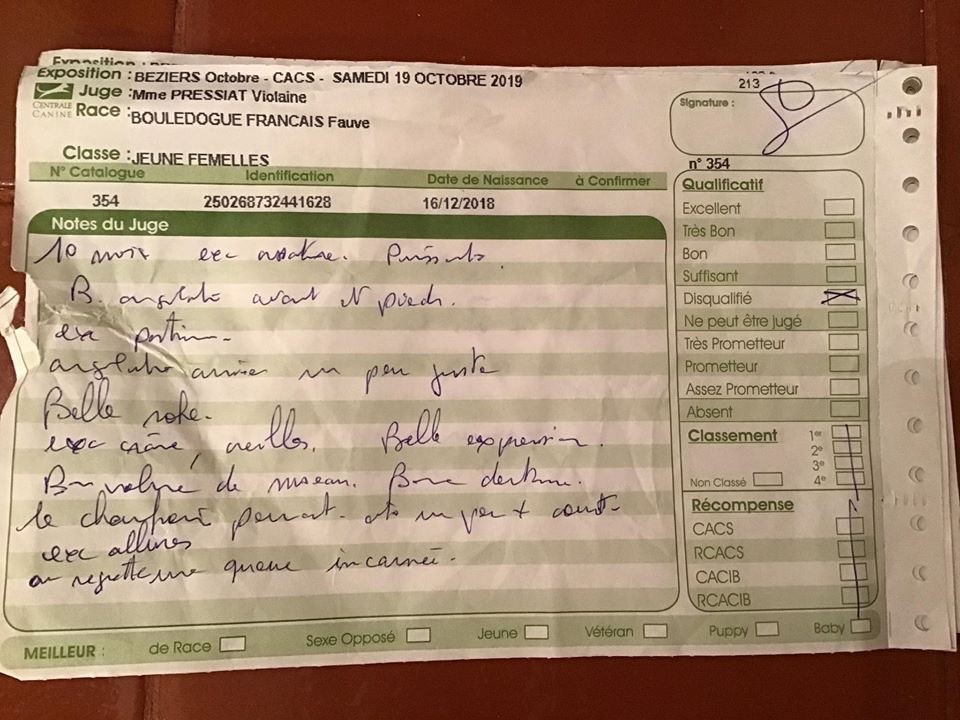 Exposition : BEZIERS Octobre - CACS - SAMEDI 19 OCTOBRE 2019
Juge : Mme PRESSIAT Violaine
CENTRALE CANINE
Race : BOULEDOGUE FRANCAIS Fauve
Classe : JEUNE FEMELLES
N° Catalogue Identification Date de Naissance à Confirmer
354 250268732441628 16/12/2018
Notes du Juge
10 mois exc ossature. Puissante
B. angulation avant et pieds.
exc poitrine.
angulation arrière un peu juste
Belle robe.
exc crâne, oreilles. Belle expression.
Bon volume de museau. Bonne denture.
le chanfrein pourrait être un peu + court.
exc allures
on regrette une queue incarnée.
213
Signature :
n° 354
Qualificatif
Excellent
Très Bon
Bon
Suffisant
Disqualifié
Ne peut être jugé
Très Prometteur
Prometteur
Assez Prometteur
Absent
Classement 1er
2e
3e
Non Classé 4e
Récompense
CACS
RCACS
CACIB
RCACIB
MEILLEUR : de Race Sexe Opposé Jeune Vétéran Puppy Baby